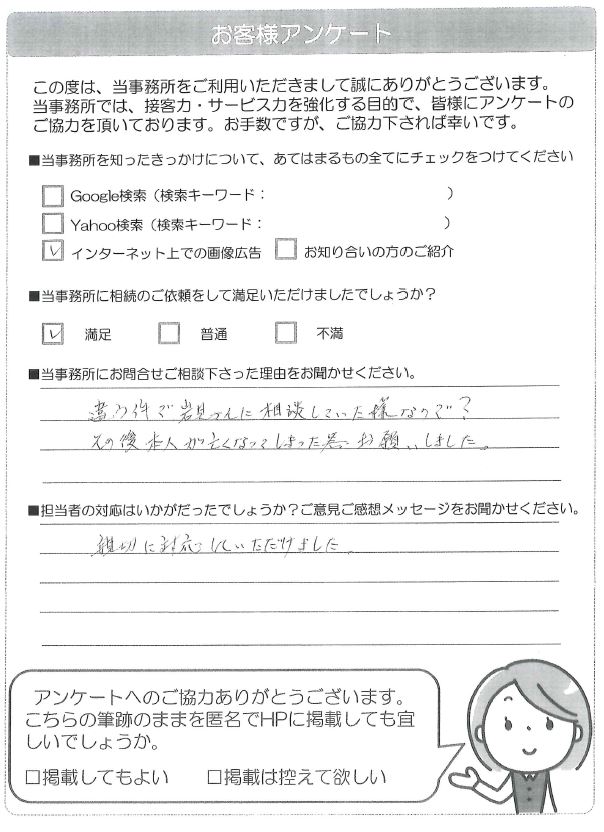 お客様アンケート
この度は、当事務所をご利用いただきまして誠にありがとうございます。
当事務所では、接客力・サービス力を強化する目的で、皆様にアンケートの
ご協力を頂いております。お手数ですが、ご協力下されば幸いです。
■当事務所を知ったきっかけについて、あてはまるもの全てにチェックをつけてください
Google検索（検索キーワード： ）
Yahoo検索（検索キーワード： ）
インターネット上での画像広告 お知り合いの方のご紹介
■当事務所に相続のご依頼をして満足いただけましたでしょうか？
満足 普通 不満
■当事務所にお問合せご相談下さった理由をお聞かせください。
違う件で岩見さんに相談していた様なので？
その後本人が亡くなってしまった為にお願いしました。
■担当者の対応はいかがだったでしょうか？ご意見ご感想メッセージをお聞かせください。
親切に対応していただけました。
アンケートへのご協力ありがとうございます。
こちらの筆跡のままを匿名でHPに掲載しても宜
しいでしょうか。
□掲載してもよい □掲載は控えて欲しい